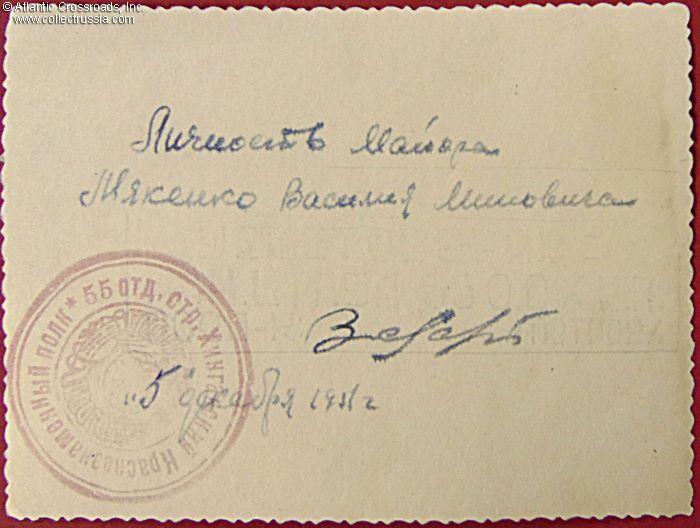 © Atlantic Crossroads, Inc.
www.collectrussia.com
Личность Майора
Василия Миновича
* 55 ОТД. СТР. ХИНГАНСКИЙ КРАСНОЗНАМЕННЫЙ ПОЛК
"5" декабря 1951 г